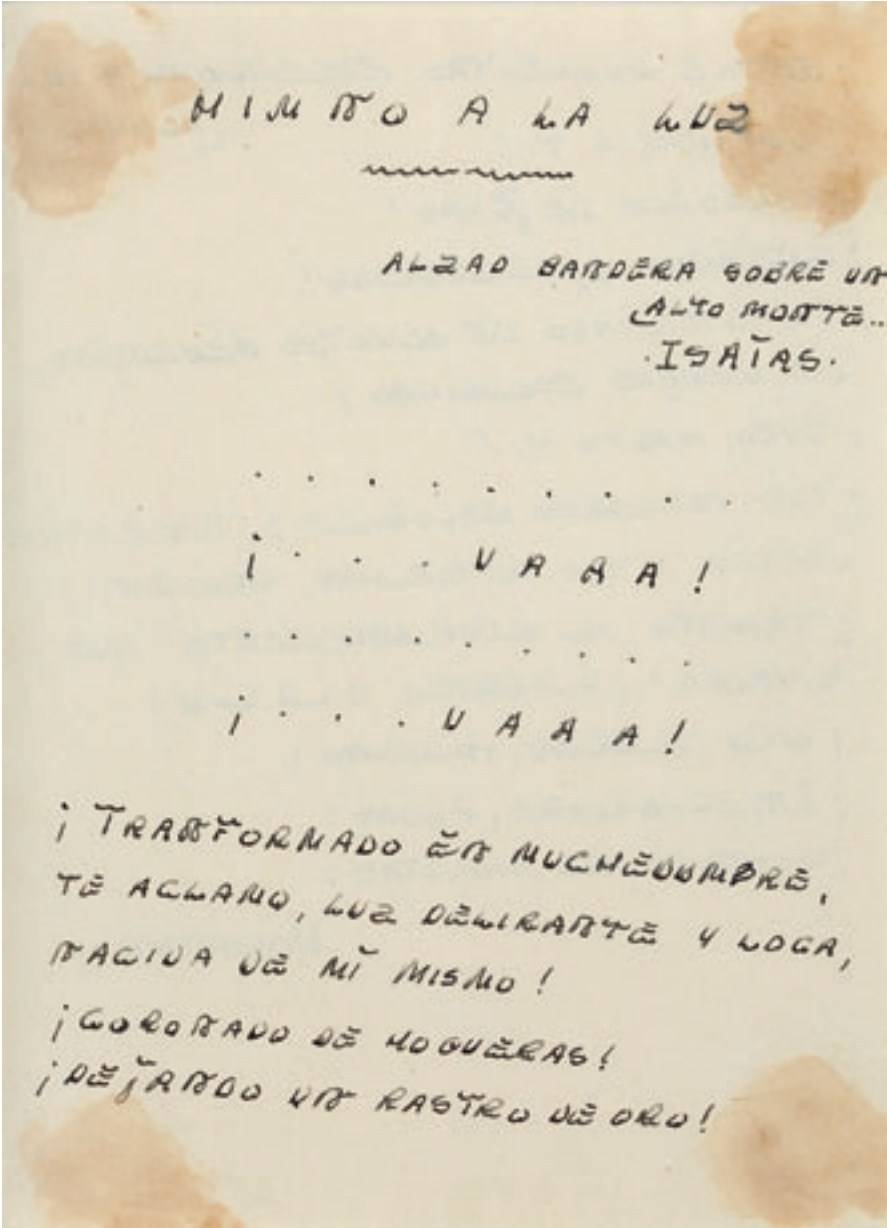 HIMNO A LA LUZ
ALZAD BANDERA SOBRE UN
ALTO MONTE...
·ISAÍAS·
. . . . . . . . .
¡ . . . VAAA!
. . . . . . . . .
¡ . . . VAAA!
¡TRANFORMADO EN MUCHEDUMBRE,
TE ACLAMO, LUZ DELIRANTE Y LOCA,
NACIDA DE MÍ MISMO!
¡CORONADO DE HOGUERAS!
¡DEJANDO UN RASTRO DE ORO!